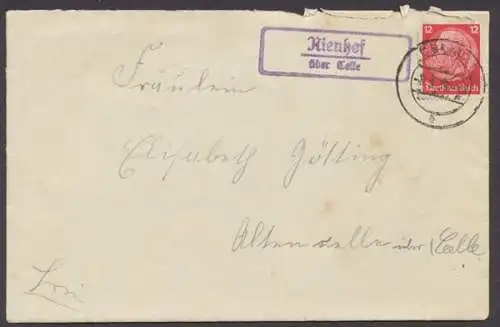 Nienhof
über Celle
12 12
Deutsches Reich
CELLE
Fräulein
Elisabeth Götting
Altencelle über (Celle